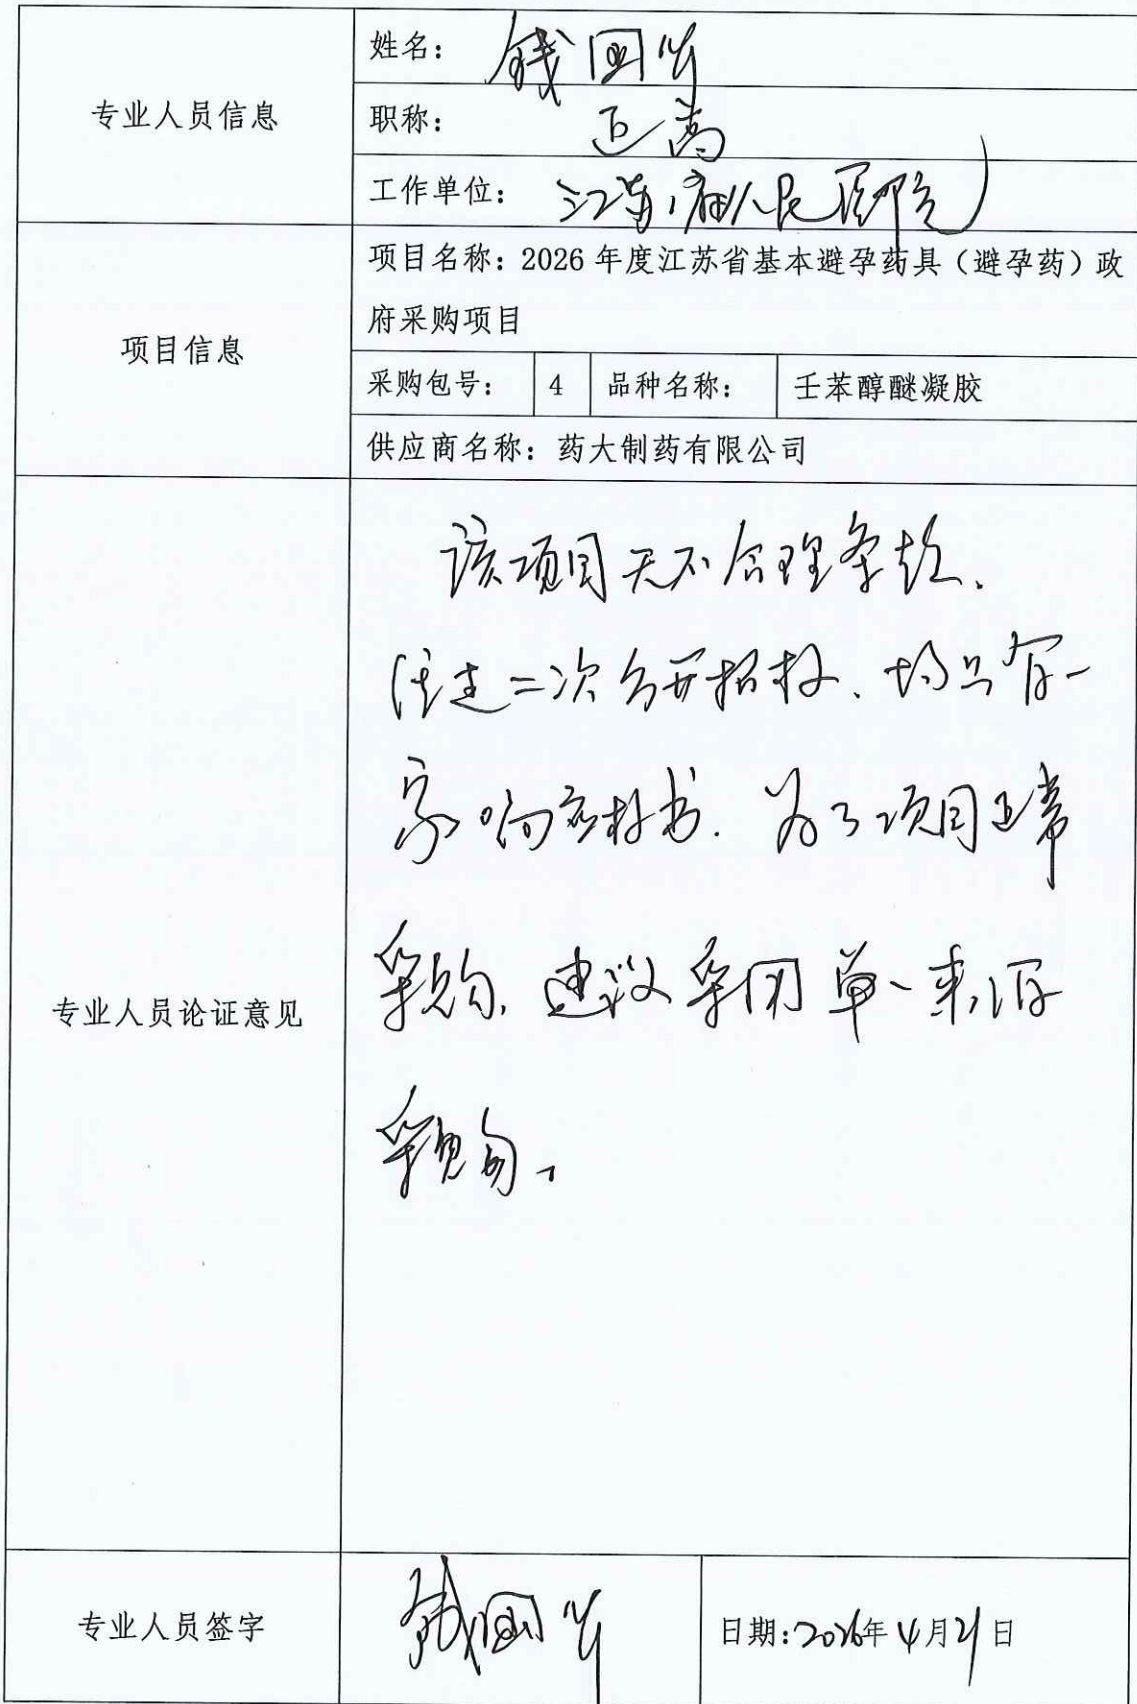 专业人员信息
姓名：钱国
职称：正高
工作单位：江苏省人民医院
项目信息
项目名称：2026 年度江苏省基本避孕药具（避孕药）政
府采购项目
采购包号： 4 品种名称： 壬苯醇醚凝胶
供应商名称：药大制药有限公司
专业人员论证意见
该项目无不合理条款.
经过二次公开招标、均只有一
家响应标书. 为了项目正常
采购, 建议采用单一来源
采购。
专业人员签字
钱国
日期:2026年4月21日